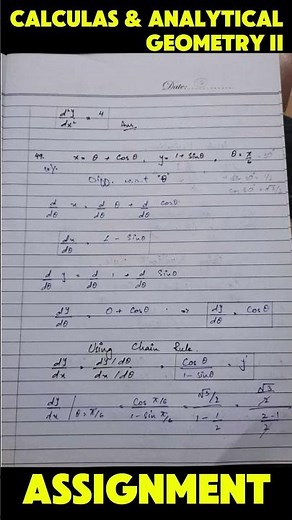 CALCULAS & ANALYTICAL
GEOMETRY II
Date:
d²y/dx² = 4 Ans.
49. x = θ + Cosθ, y = 1 + Sinθ, θ = π/6
Diff. w.r.t "θ"
d/dθ x = d/dθ θ + d/dθ cosθ
dx/dθ = 1 - Sinθ
d/dθ y = d/dθ 1 + d/dθ Sinθ
dy/dθ = 0 + Cosθ ⇒ dy/dθ = Cosθ
Using Chain Rule
dy/dx = dy/dθ / dx/dθ = Cosθ / 1 - Sinθ = y'
dy/dx | θ = π/6 = Cos π/6 / 1 - Sin π/6 = √3/2 / 1 - 1/2 = √3/2 / 2-1/2
ASSIGNMENT